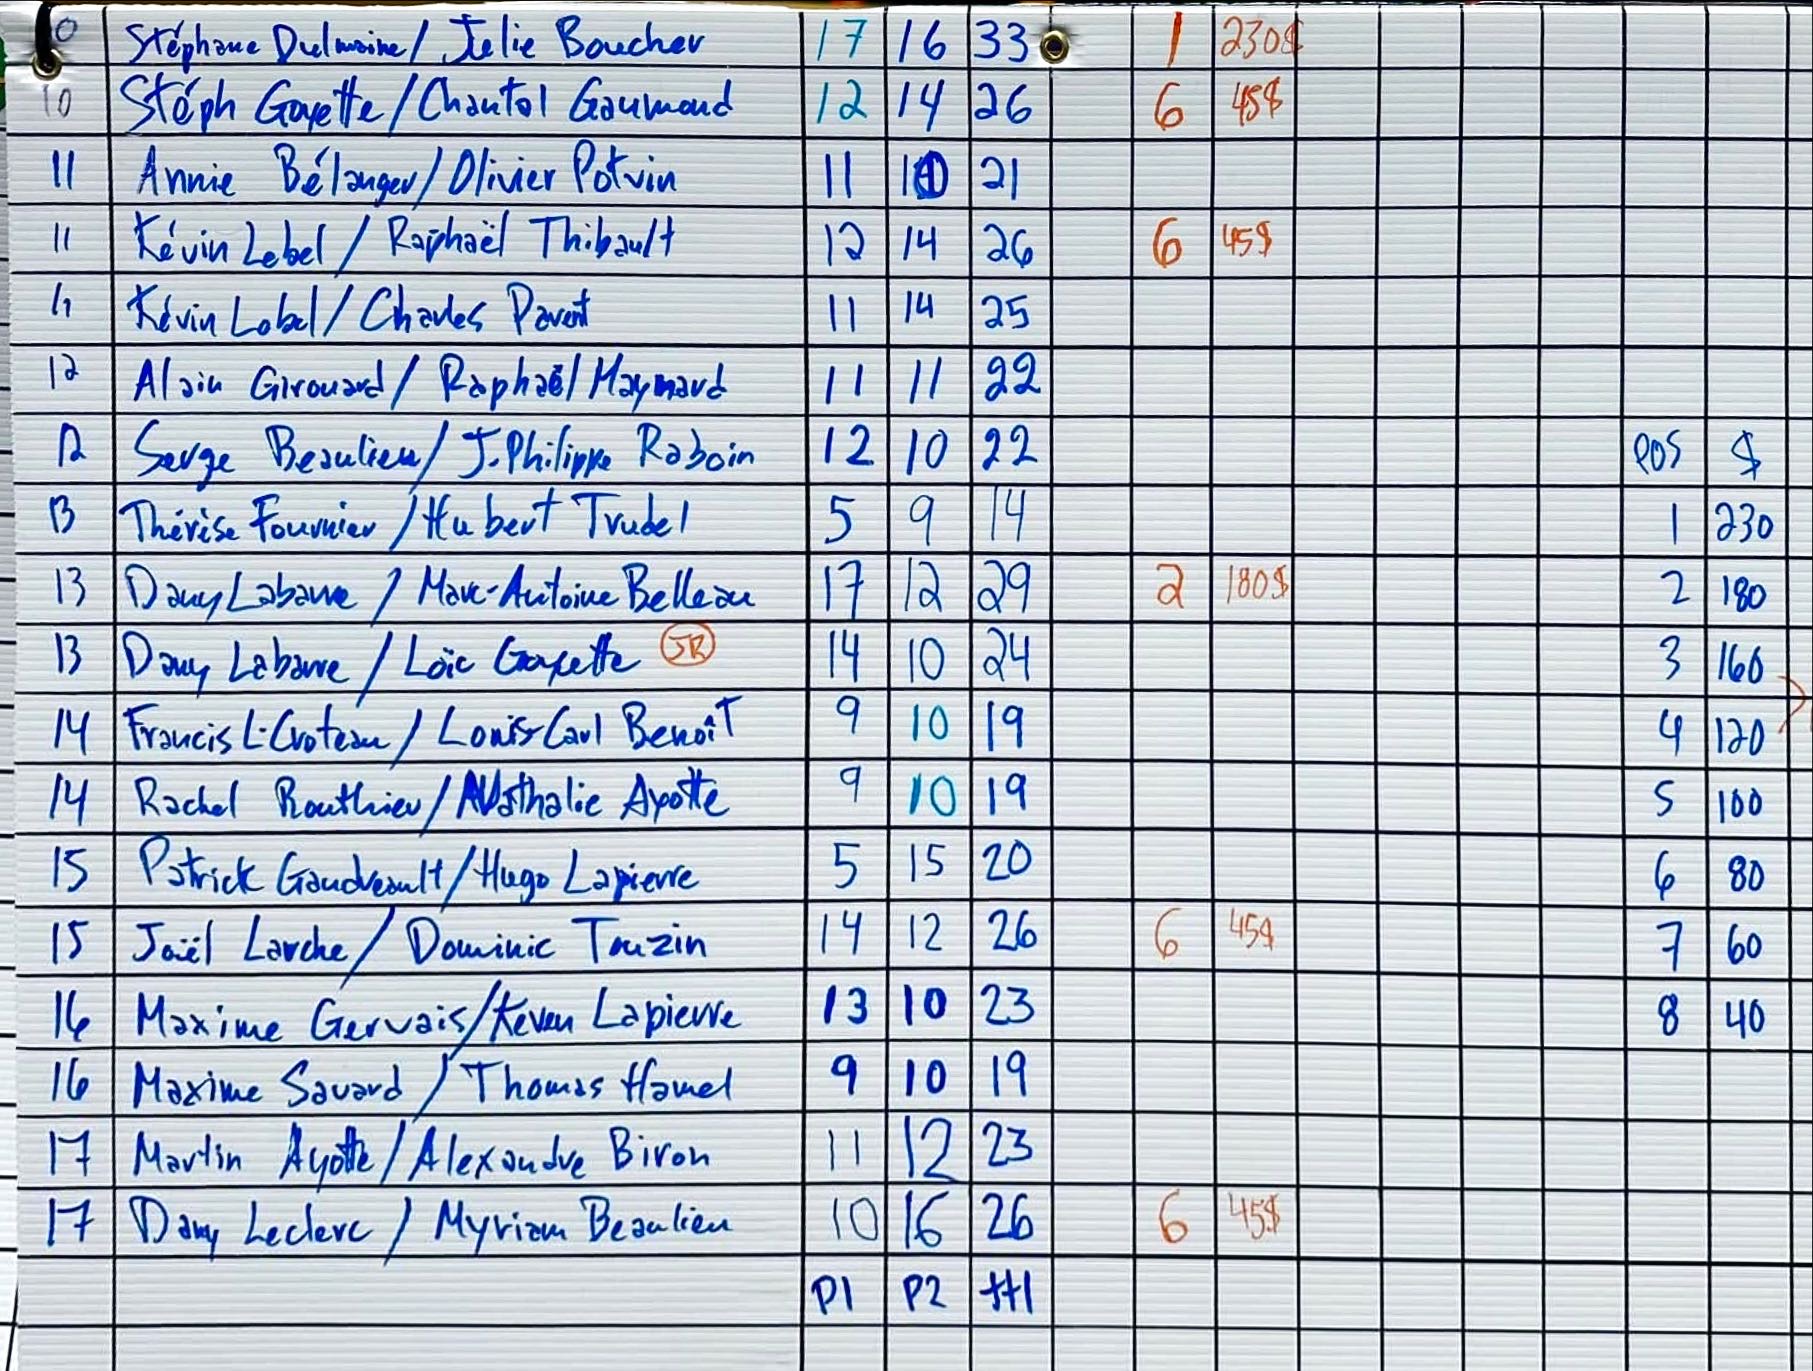 10 Stéphane Dulmaine / Julie Boucher 17 16 33 1 230$
10 Stéph Goyette / Chantal Gaumond 12 14 26 6 45$
11 Annie Bélanger / Olivier Potvin 11 10 21
11 Kévin Lebel / Raphaël Thibault 12 14 26 6 45$
11 Kévin Lebel / Charles Parent 11 14 25
12 Alain Girouard / Raphaël Maynard 11 11 22
12 Serge Beaulieu / J.Philippe Raboin 12 10 22 POS $
13 Thérèse Fournier / Hubert Trudel 5 9 14 1 230
13 Dany Labarre / Marc-Antoine Belleau 17 12 29 2 180$ 2 180
13 Dany Labarre / Loïc Goyette JR 14 10 24 3 160
14 Francis L-Croteau / Louis-Carl Benoît 9 10 19 4 120
14 Rachel Routhier / Nathalie Ayotte 9 10 19 5 100
15 Patrick Gaudreault / Hugo Lapierre 5 15 20 6 80
15 Joël Larche / Dominic Touzin 14 12 26 6 45$ 7 60
16 Maxime Gervais / Keven Lapierre 13 10 23 8 40
16 Maxime Savard / Thomas Hamel 9 10 19
17 Martin Ayotte / Alexandre Biron 11 12 23
17 Dany Leclerc / Myriam Beaulieu 10 16 26 6 45$
P1 P2 ttl